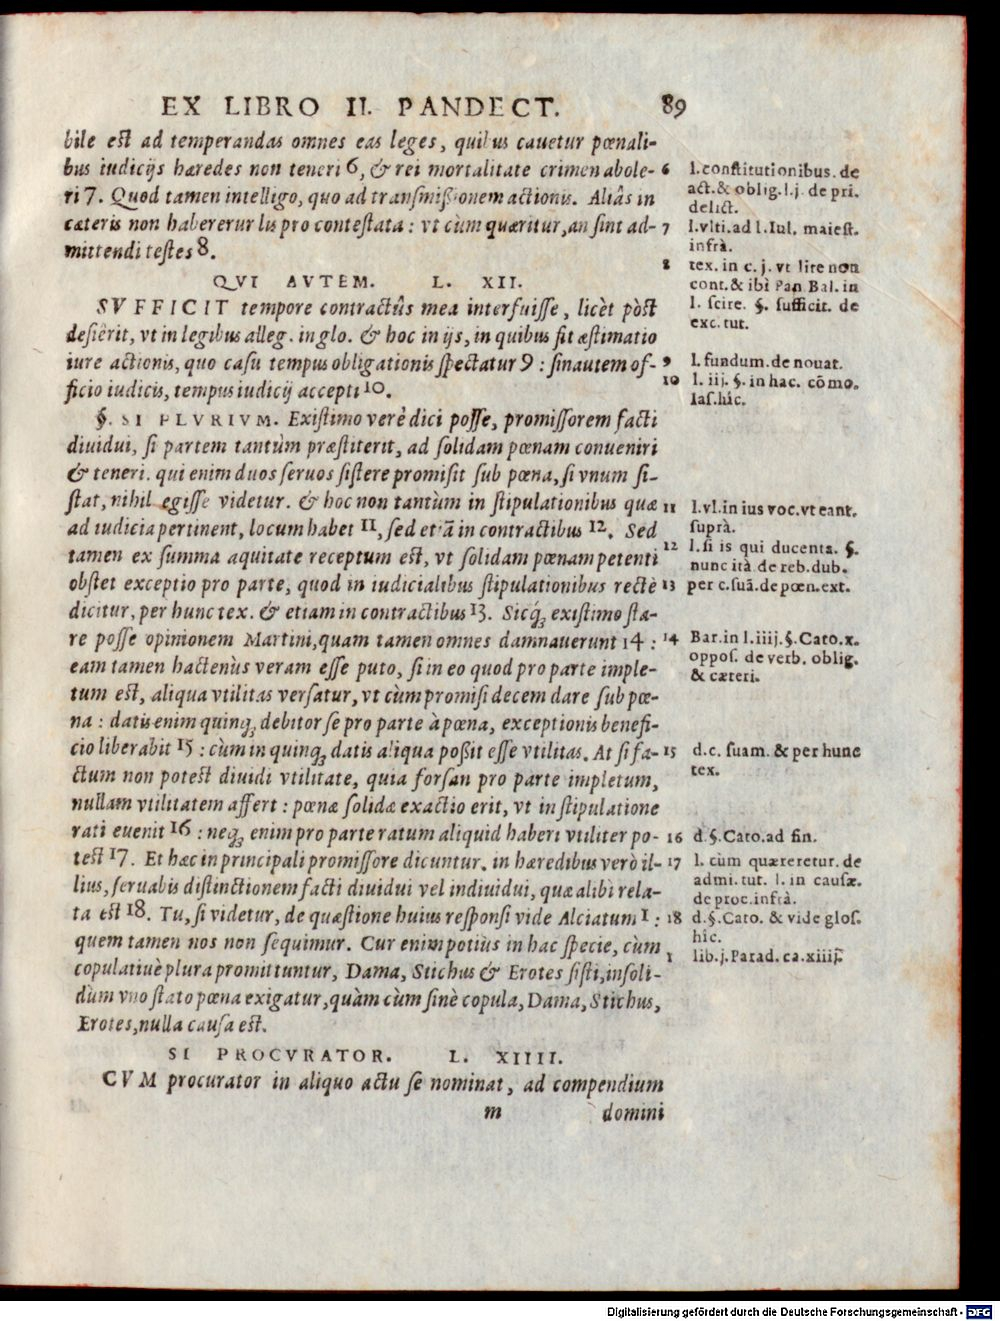 EX LIBRO II. PANDECT. 89
bile est ad temperandas omnes eas leges, quibus cauetur pœnali-
bus iudicijs hæredes non teneri 6, & rei mortalitate crimen abole-
ri 7. Quod tamen intelligo, quo ad transmißionem actionis. Aliâs in
cæteris non habererur lis pro contestata : vt cùm quæritur, an sint ad-
mittendi testes 8.
QVI AVTEM. L. XII.
SVFFICIT tempore contractûs mea interfuisse, licèt pòst
desierit, vt in legibus alleg. in glo. & hoc in ijs, in quibus fit æstimatio
iure actionis, quo casu tempus obligationis spectatur 9 : sin autem of-
ficio iudicis, tempus iudicij accepti 10.
§. SI PLVRIVM. Existimo verè dici posse, promissorem facti
diuidui, si partem tantùm præstiterit, ad solidam pœnam conueniri
& teneri. qui enim duos seruos sistere promisit sub pœna, si vnum si-
stat, nihil egisse videtur. & hoc non tantùm in stipulationibus quæ
ad iudicia pertinent, locum habet 11, sed etiā in contractibus 12. Sed
tamen ex summa æquitate receptum est, vt solidam pœnam petenti
obstet exceptio pro parte, quod in iudicialibus stipulationibus rectè
dicitur, per hunc tex. & etiam in contractibus 13. Sicq́; existimo sta-
re posse opinionem Martini, quam tamen omnes damnauerunt 14 :
eam tamen hactenùs veram esse puto, si in eo quod pro parte imple-
tum est, aliqua vtilitas versatur, vt cùm promisi decem dare sub pœ-
na : datis enim quinq; debitor se pro parte à pœna, exceptionis benefi-
cio liberabit 15 : cùm in quinq; datis aliqua poßit esse vtilitas. At si fa-
ctum non potest diuidi vtilitate, quia forsan pro parte impletum,
nullam vtilitatem affert : pœnæ solidæ exactio erit, vt in stipulatione
rati euenit 16 : neq; enim pro parte ratum aliquid haberi vtiliter po-
test 17. Et hæc in principali promissore dicuntur. in hæredibus verò il-
lius, seruabis distinctionem facti diuidui vel indiuidui, quæ alibi rela-
ta est 18. Tu, si videtur, de quæstione huius responsi vide Alciatum 1 :
quem tamen nos non sequimur. Cur enim potiùs in hac specie, cùm
copulatiuè plura promittuntur, Dama, Stichus & Erotes sisti, in soli-
dùm vno stato pœna exigatur, quàm cùm sinè copula, Dama, Stichus,
Erotes, nulla causa est.
SI PROCVRATOR. L. XIIII.
CVM procurator in aliquo actu se nominat, ad compendium
m domini
6 l. constitutionibus. de
act. & oblig. l. j. de pri.
delict.
7 l. vlti. ad l. Iul. maiest.
infrà.
8 tex. in c. j. vt lite non
cont. & ibì Pan Bal. in
l. scire. §. sufficit. de
exc. tut.
9 l. fundum. de nouat.
10 l. iij. §. in hac. cōmo.
Ias. hîc.
11 l. vl. in ius voc. vt eant.
suprà.
12 l. si is qui ducenta. §.
nunc ità de reb. dub.
13 per c. suā. de pœn. ext.
14 Bar. in l. iiij. §. Cato. x.
oppos. de verb. oblig.
& cæteri.
15 d. c. suam. & per hunc
tex.
16 d. §. Cato. ad fin.
17 l. cùm quæreretur. de
admi. tut. l. in causæ.
de proc. infrà.
18 d. §. Cato. & vide glos.
hîc.
1 lib. j. Parad. ca. xiiij.
Digitalisierung gefördert durch die Deutsche Forschungsgemeinschaft - DFG